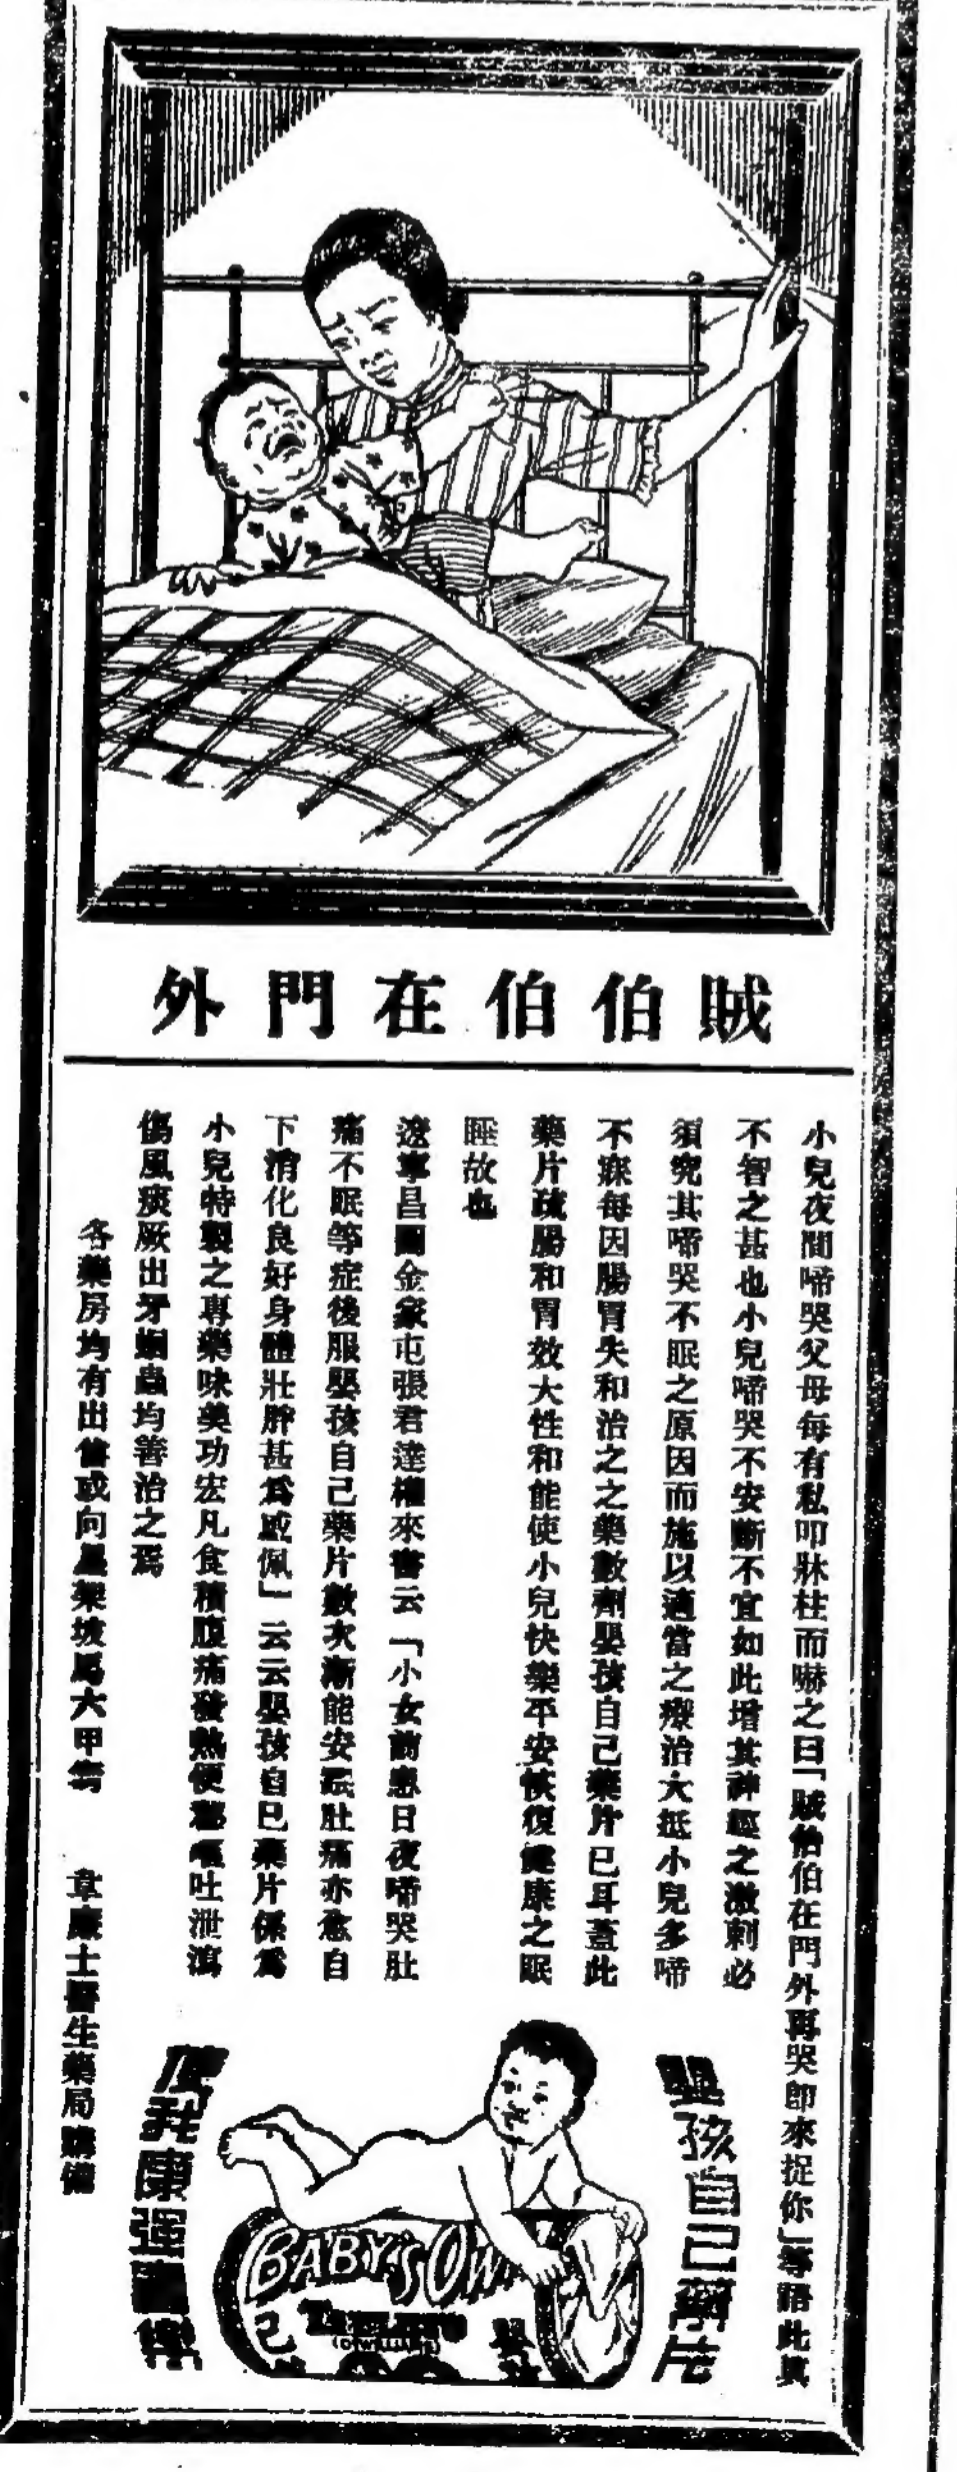 賊伯伯在門外
小兒夜間啼哭父母每有私叩牀柱而嚇之曰「賊伯伯在門外再哭即來捉你」等語此眞
不智之甚也小兒啼哭不安斷不宜如此增其神經之激刺必
須究其啼哭不眠之原因而施以適當之療治大抵小兒多啼
不寐每因腸胃失和治之之藥數劑嬰孩自己藥片已耳蓋此
藥片疏腸和胃效大性和能使小兒快樂平安恢復健康之眠
睡故也
遼寧昌圖金家屯張君達權來書云「小女前患日夜啼哭肚
痛不眠等症後服嬰孩自己藥片數次漸能安眠肚痛亦愈自
下消化良好身體壯胖甚爲感佩」云云嬰孩自己藥片係爲
小兒特製之專藥味美功宏凡食積腹痛發熱便秘嘔吐泄瀉
傷風痰厥出牙蛔蟲均善治之焉
各藥房均有出售或向星架坡馬六甲街 韋廉士醫生藥局購備
嬰孩自己藥片
BABY'S OWN
TABLETS
己
嬰孩
使我康强喜樂